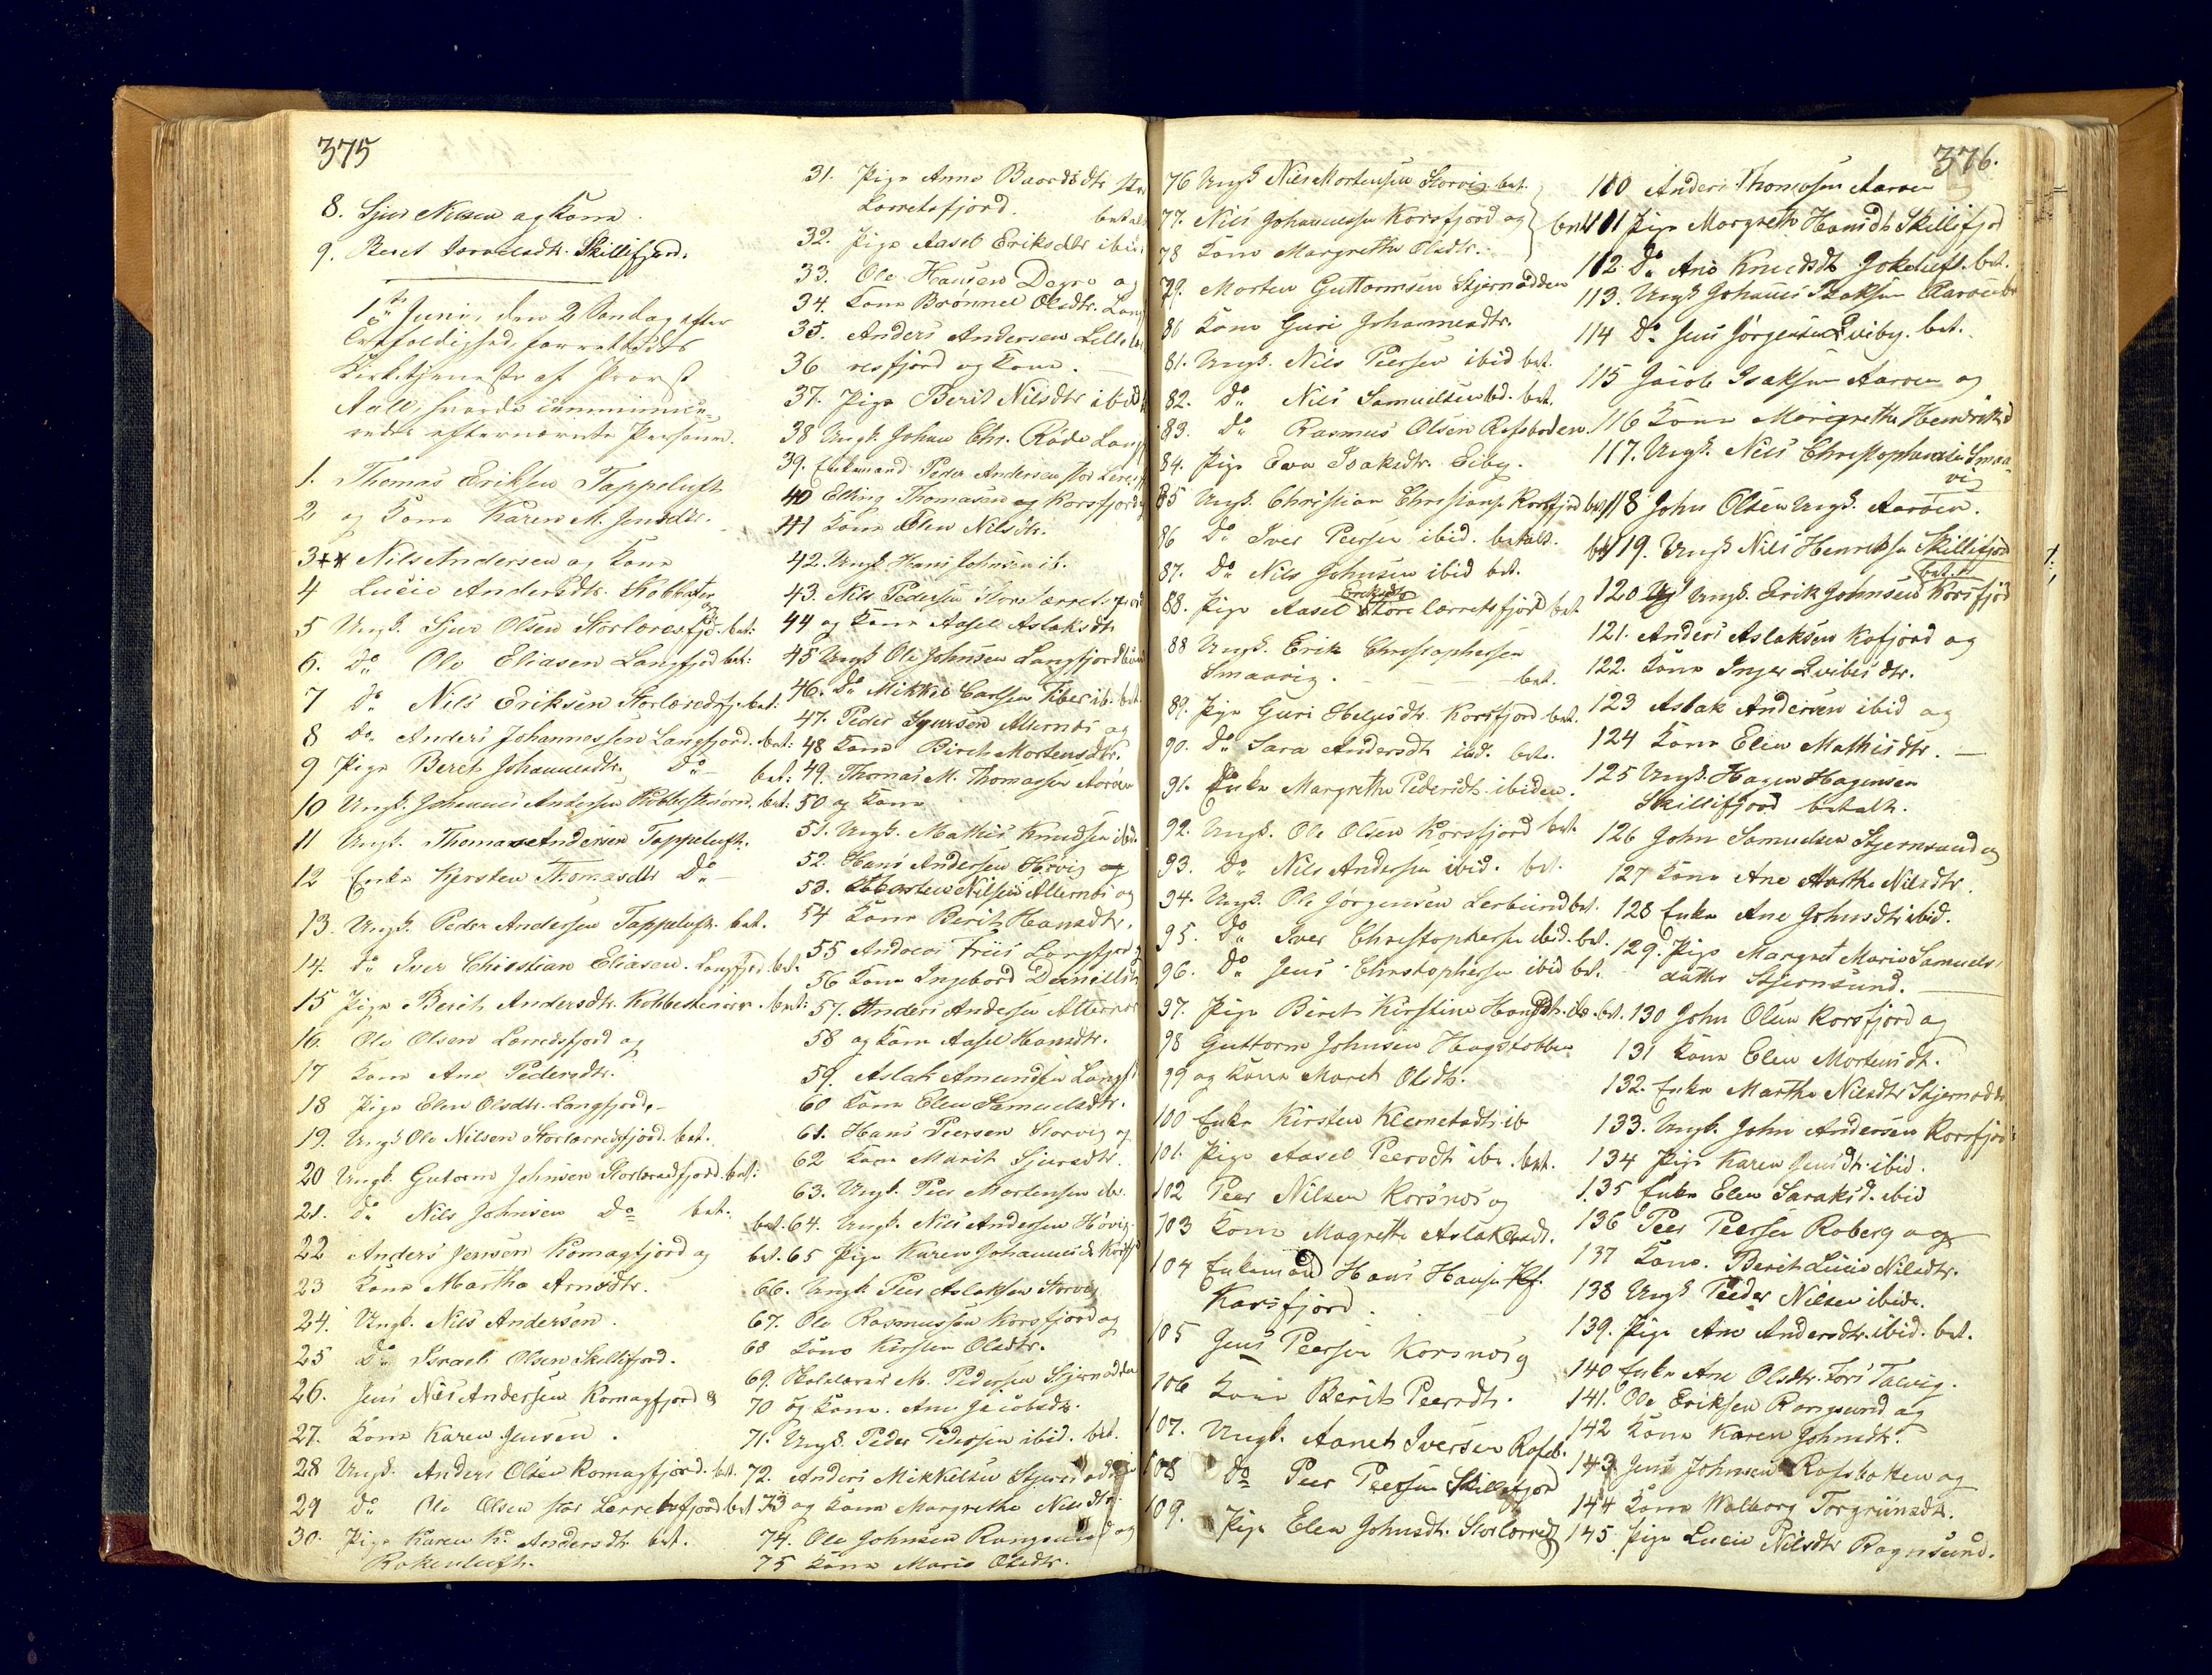 375
8. Sjur Nilsen og Kone.
9. Beret Israelsdtr. Skillifjord.
1ste Juni, den 2 Søndag efter
Trefoldighed, forrettedes
Kirketjeneste af Provst
Aall, hvorda communice-
redes efternævnte Personer.
1. Thomas Eriksen Tappeluft
2 og Kone Karen M. Jensdtr.
3 Nils Andersen og Kone
4 Lucie Andersdtr. Kobbe
5 Ungk. Sjur Olsen Storlæresfjd. bet:
6. Do Ole Eliasen Langfjord bet:
7 Do Nils Eriksen Storlæredsfj. bet:
8 Do. Anders Johannessen Langfjord. bet:
9 Pige Beret Johannesdtr. Do bet:
10 Ungk. Johannes Andersen bet:
11 Ungk. Thomas Andersen Tappeluft.
12 Enke Kjersten Thomasdtr Do
13. Ungk. Peder Andersen Tappeluft. bet.
14. Do Iver Christian Eliasen. Langfjrd. bet.
15 Pige Berit Andersdtr. bet:
16. Ole Olsen Lærredsfjord og
17 Kone Ane Pedersdtr.
18 Pige Elen Olsdtr. Langfjord.
19. Ungk Ole Nilsen Storlærredsfjord. bet.
20 Ungk. Gutorm Johnsen Storlæredfjord bet:
21. Do Nils Johnsen Do bet.
22 Anders Jensen Komagfjord og
23 Kone Martha Arnsdtr.
24. Ungk. Nils Andersen.
25 Do Israel Olsen Skillifjord.
26. Jens Nils Andersen Komagfjord &
27. Kone Karen Jensen.
28 Ungk. Anders Olsen Komagfjord. bet.
29 Do Ole Olsen stor Lerretsfjord bet
30. Pige Karen K. Andersdtr bet.
Rokeluft.
31. Pige Anne Baardsdtr
Lærretsfjord.
32. Pige Aasel Eriksdtr ibid
33. Ole Hansen og
34. Kone Brønnel Olsdtr. Lang
35. Anders Andersen Lille
36 resfjord og Kone.
37. Pige Berit Nilsdtr ibid
38 Ungk. Johan Chr. Røde Lang
39. Enkemand Peder Andersen stor
40 Elling Thomasen og Korsfjord
41 Kone Elen Nilsdtr.
42. Ungk. Hans Johnsen ib.
43. Nils Pedersen Storlærretsfjord
44 og Kone Aasel Aslaksdtr
45 Ungk Ole Johnsen Langfjordbund
46. Do Mikkel Carlsen ib. bet
47. Peder Sjursen Alternæs og
48 Kone Biret Mortensdtr.
49. Thomas M. Thomassen Aarøen
50 og Kone
51. Ungk. Mathis Knudsen ibid
52. Hans Andersen Høvig
53. Morten Nilsen Alternæs og
54 Kone Berit Hansdtr.
55 Andreas Friis Langfjord
56 Kone Ingebord
57. Anders Andersen Alternæs
58 og Kone Aasel Hansdtr.
59. Aslak Amundsen Langf
60 Kone Elen Samuelsdtr.
61. Hans Peersen Storvig og
62 Kone Marit Sjursdtr.
63. Ungk. Peer Mortensen ib.
bet. 64. Ungk. Nils Andersen Høvig.
bet. 65 Pige Karen Johannesdtr Korsfjd
66. Ungk. Peer Aslaksen Storvig
67. Ole Rasmussen Korsfjord og
68 Kone Kirsten Olsdtr.
69. Skolelærer M. Pedersen Stjernodden
70 og Kone. Ane Jacobsdtr.
71. Ungk. Peder Pedersen ibid. bet.
72. Anders Mikkelsen
73 og Kone Margrethe Nilsdtr.
74. Ole Johnsen Rongsund og
75 Kone Marie Olsdtr.
376.
76 Ungk Nils Mortensen Storvig bet.
77. Nils Johannessen Korsfjord og bet
78 Kone Margrethe Olsdtr.
79. Morten Guttormsen Stjernodden
80 Kone Guri Johannesdtr.
81. Ungk. Nils Peersen ibid bet.
82. Do Nils Samuelsen ibd. bet.
83. Do Rasmus Olsen Rafsbotten.
84. Pige Eva Isaksdtr. Eiby.
85 Ungk. Christian Christians. Korsfjord bet
86 Do Iver Peersen ibid. betalt.
87. Do Nils Johnsen ibid bet.
88. Pige Aasel Eriksdtr Storelærretsfjord bet
88 Ungk. Erik Christophersen
Smaavig. bet.
89. Pige Guri Helgesdtr. Korsfjord bet.
90. Do Sara Andersdtr ibd. bet.
91. Enke Margrethe Pedersdtr. ibidem.
92. Ungk. Ole Olsen Korsfjord bet.
93. Do Nils Andersen ibid. bet.
94. Ungk. Ole Jørgensen Lerbund bet.
95. Do Iver Christophersen ibid. bet.
96. Do Jens Christophersen ibid bet.
97. Pige Biret Kirstine Hansdtr. ib. bet.
98 Guttorm Johnsen Hagstobben
99 og Kone Maret Olsdtr.
100 Enke Kirsten Klemetsdtr. ib
101. Pige Aasel Peersdtr ibr. bet.
102 Peer Nilsen Korsnæs og
103 Kone Magrethe Aslaksdtr.
104 Enkemand Hans Hansen
Korsfjord.
105 Jens Peersen Korsnæs og
106 Kone Berit Peersdtr.
107. Ungk. Aanet Iversen Rafsb.
108 Do Peer Peersen Skillefjord
109. Pige Elen Johnsdtr. Storlærred
110 Anders Thomasen Aarøen
111 Pige Margreth Hansdtr Skillifjord
112 Do Ane Knudsdtr Jokeluft. bet.
113. Ungk Johannes Isaksen Aarøen bet
114 Do Jens Jørgensen Qviby. bet.
115 Jacob Isaksen Aarøen og
116 Kone Margrethe Hendriksd
117. Ungk. Nils Christophersen Smaa-
vig
118 John Olsen Ungk. Aarøen.
bet 119. Ungk Nils Henriksen Skillifjord
bet.
120 Ungk. Erik Johnsen Korsfjord
121. Anders Aslaksen Kafjord og
122. Kone Inger Qvibisdtr.
123 Aslak Andersen ibid og
124 Kone Elen Mathisdtr.
125 Ungk. Hagen Hagensen
Skillifjord betalt.
126 John Samuelsen Stjernsund og
127 Kone Ane Marthe Nilsdtr.
128 Enke Ane Johnsdtr ibid.
129. Pige Margret Marie Samuels-
datter Stjernsund.
130 John Olsen Korsfjord og
131 Kone Elen Mortensdtr.
132. Enke Marthe Nilsdtr Stjernodden
133. Ungk. John Andersen Korsfjord
134 Pige Karen Jensdtr. ibid.
135 Enke Elen Saraksd. ibid
136 Peer Peersen Roberg og
137 Kone. Berit Lucie Nilsdtr.
138 Ungk Peder Nilsen ibidr.
139. Pige Ane Andersdtr. ibid. bet.
140 Enke Ane Olsdtr. Fors Talvig.
141. Ole Eriksen Rongsund og
142 Kone Karen Johnsdtr.
143 Jens Johnsen Rafsbotten og
144 Kone Walborg Torgrimsdtr.
145. Pige Lucie Nilsdtr Rognsund.